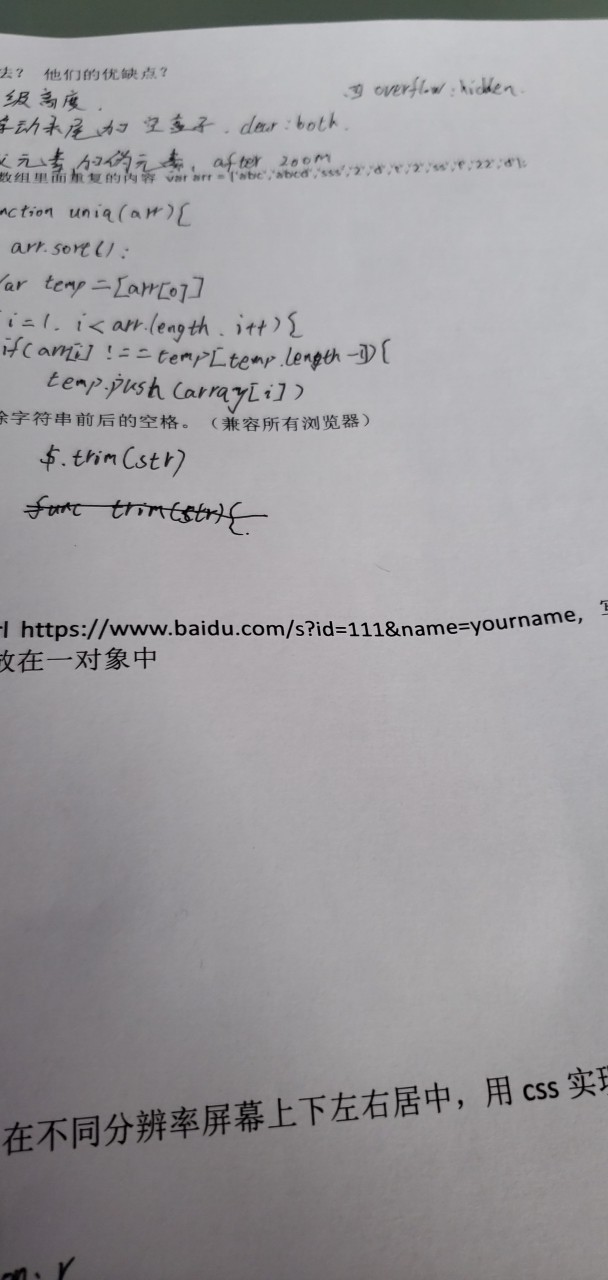 法？ 他们的优缺点？
级高度. overflow:hidden.
浮动末尾加空盒子. clear:both.
父元素加伪元素, after zoom
数组里面重复的内容 var arr = ['abc','abcd','sss','2','d','t','2','ss','f','22','d'];
nction uniq(arr){
arr.sort();
Var temp=[arr[0]]
i=1. i<arr.length. i++){
if(arr[i] !==temp[temp.length-1]){
temp.push(array[i])
除字符串前后的空格。（兼容所有浏览器）
$.trim(str)
func trim(str){
rl https://www.baidu.com/s?id=111&name=yourname,
放在一对象中
在不同分辨率屏幕上下左右居中，用 css 实现